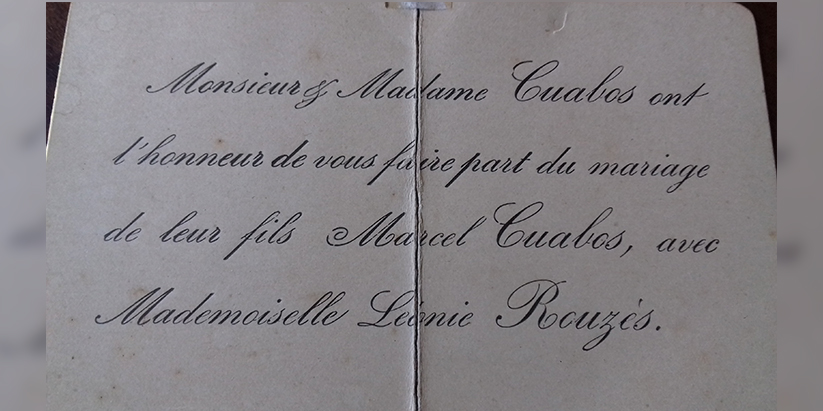 Monsieur & Madame Cuabos ont
l'honneur de vous faire part du mariage
de leur fils Marcel Cuabos, avec
Mademoiselle Léonie Rouzès.